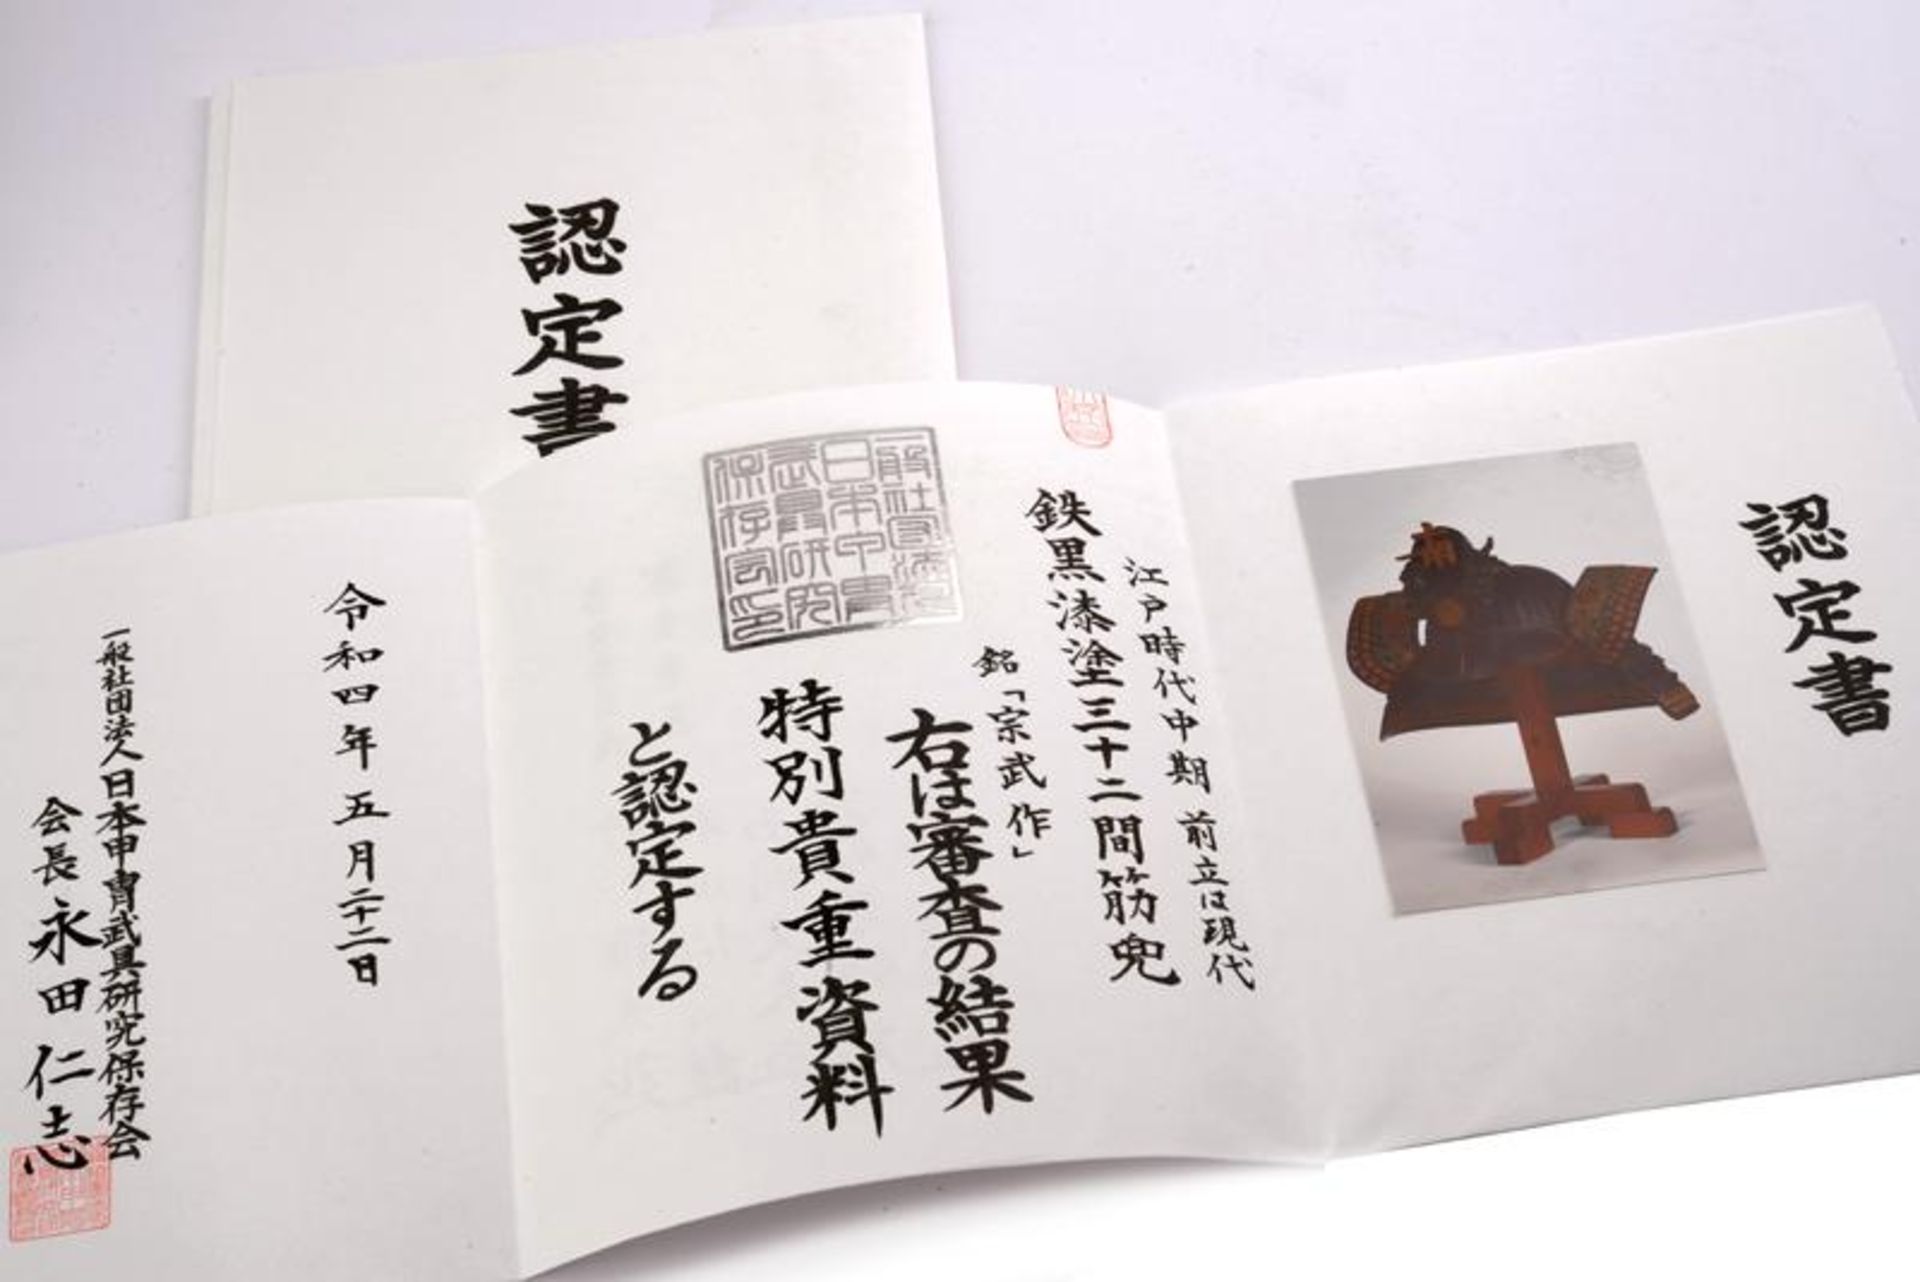 認定書
認定書
鉄黒漆塗三十二間筋兜
江戸時代中期 前立は現代
銘「宗武作」
右は審査の結果
特別貴重資料
と認定する
一般社団法人
日本甲冑
武具研究
保存会印
令和四年五月二十二日
一般社団法人日本甲冑武具研究保存会
会長 永田仁志